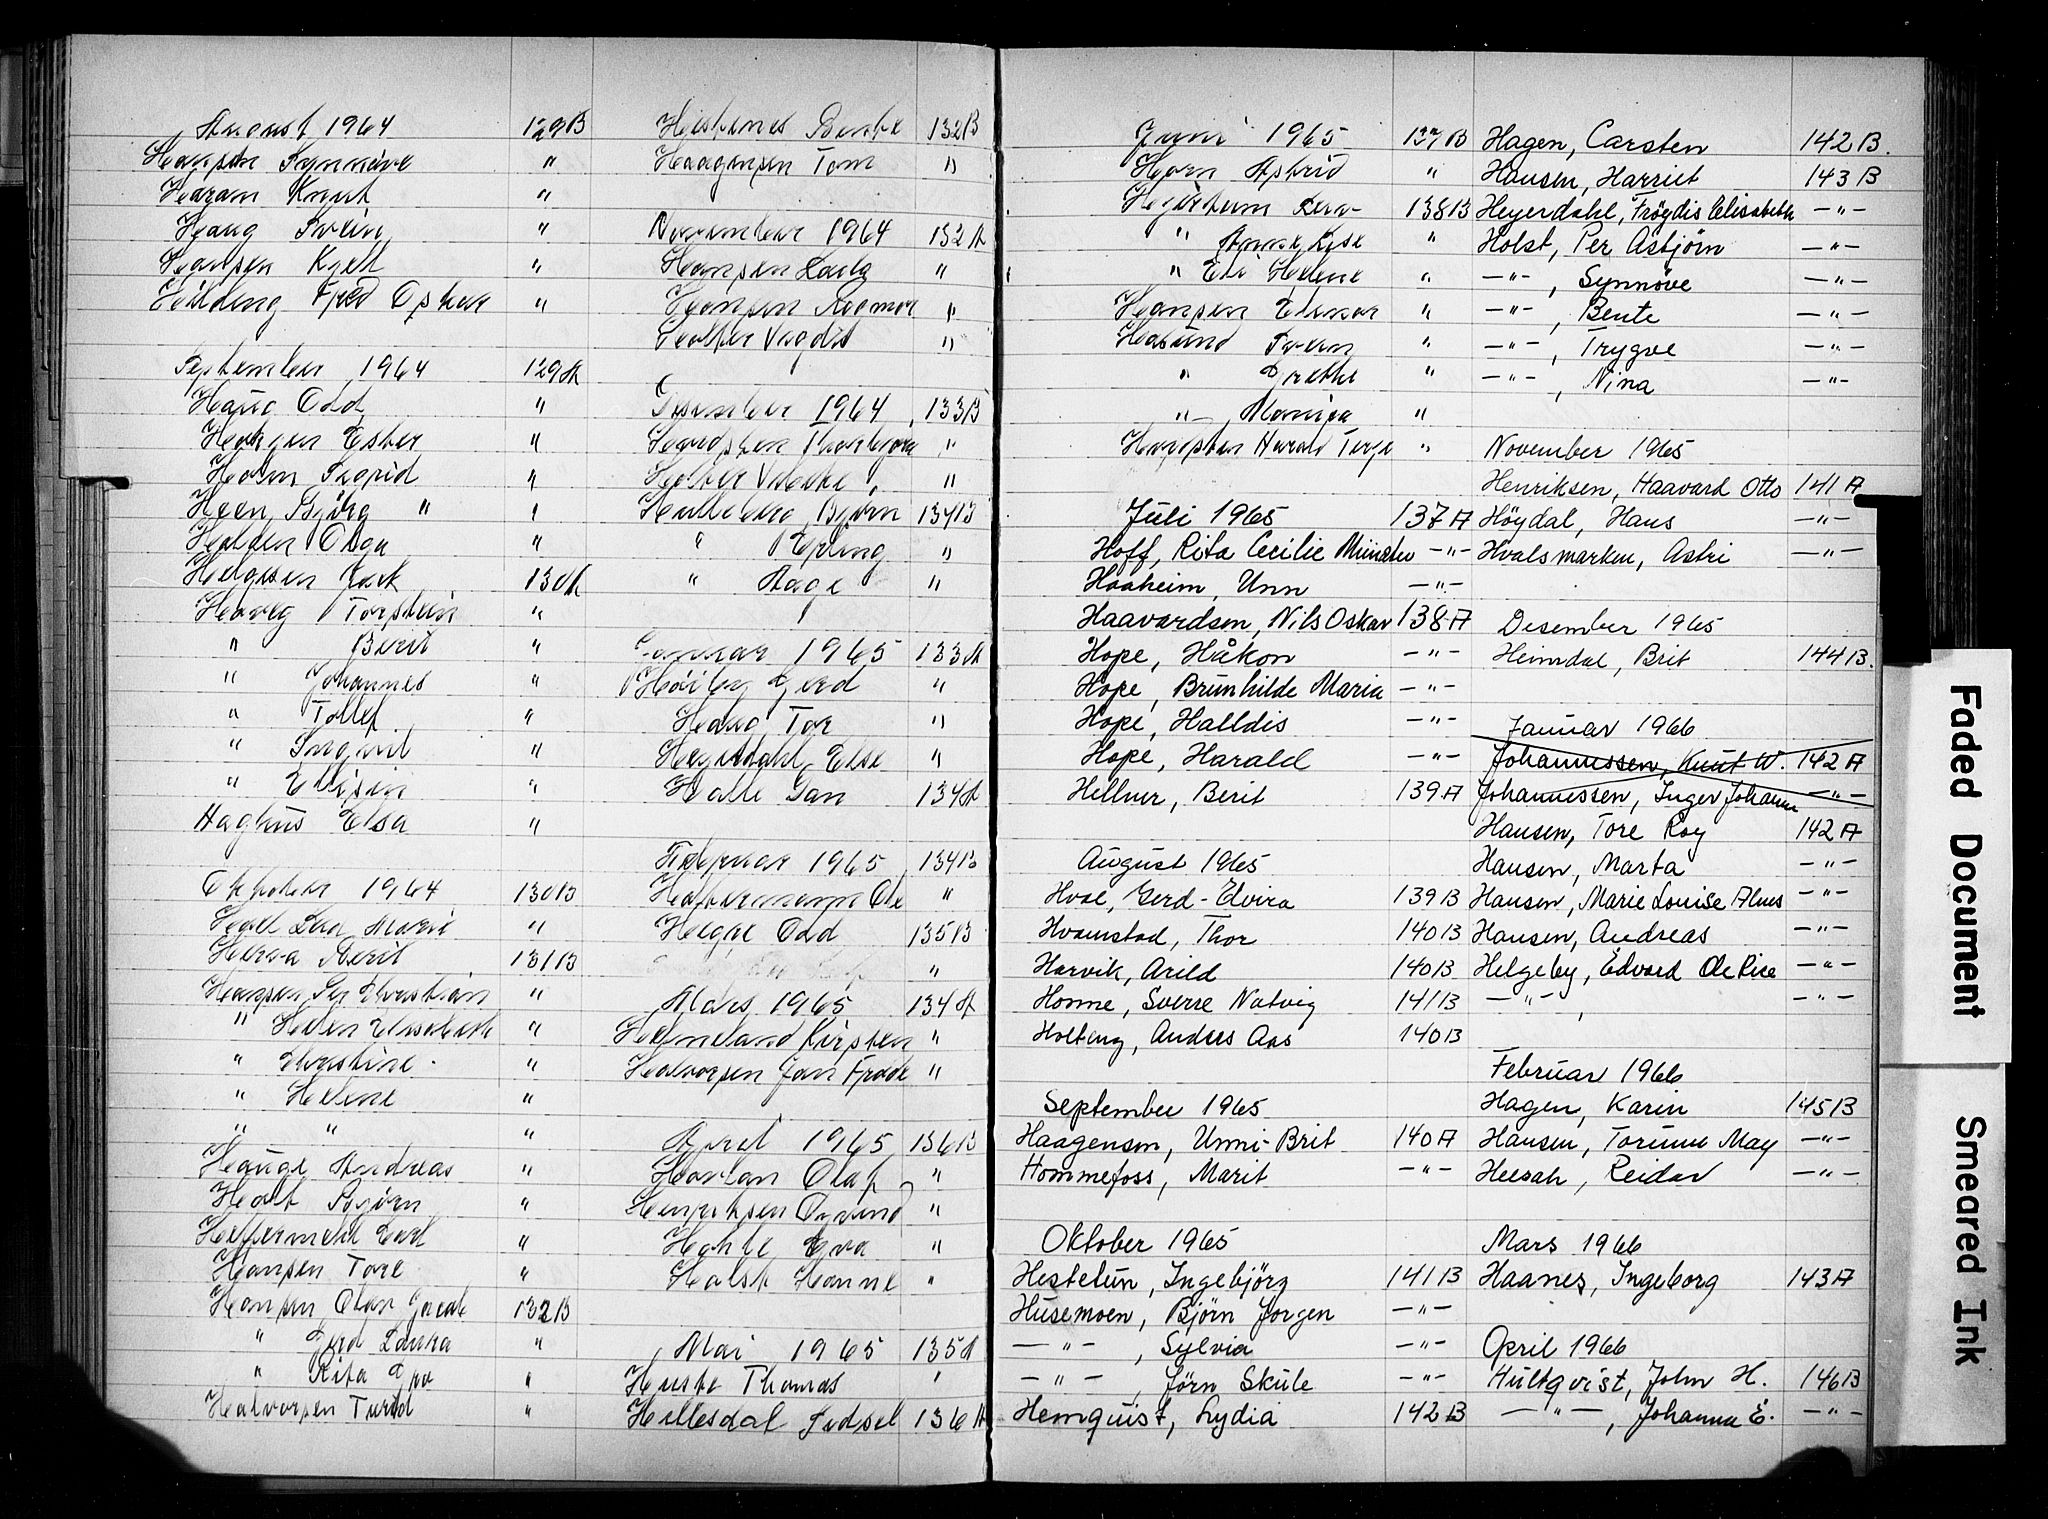 August 1964 129B
Hansen Synnøve "
Haram Knut "
Haug Svein "
Hansen Kjell "
Hilding Fred Oskar "
September 1964 129A
Haug Odd "
Haugen Ester "
Holm Sigrid "
Hoen Bjørg " "
Halden Olga "
Helgesen Jack 130A
Hovig Torstein "
" Berit "
" Johannes "
" Tollef "
" Ingvil "
" Elisin "
Haghus Elsa "
Oktober 1964 130B
Berit 131B
Hansen Per Christian "
" Helen Elisabeth "
" Christine "
" Helene "
" " "
Hauge Andreas "
Holt Bjørn "
Carl "
Hansen Tore "
Hansen Olav 132B
" Gerd Laura "
" Rita "
Halvorsen Turid "
Hestenes Bente 132B
Haagensen Tom "
November 1964 132A
Hansen Laila "
Hansen Rogmor "
Holter Vigdis "
Desember 1964 133B
Thorbjørn "
Holter "
Hulleberg Bjørn 134B
" Erling "
" Aage "
Januar 1965 133A
Høiby Gerd "
Haug Tor "
Heyerdahl Else "
Halle Jan 134A
Februar 1965 134B
Habermann Ole "
Helgøe Odd 135B
"
Mars 1965 134A
Helmeland Kirsten "
Halvorsen Jan Frode "
April 1965 136B
Harlan Olaf "
Henriksen Øyvind "
Hahle Eva "
Holst Hanne "
Mai 1965 135A
Huste Thomas "
Hellesdal Sidsel 136A
Juni 1965 137B
Horn Astrid "
138B
" Anne Lise "
" Eli Helene "
Hansen Elinar "
Hasund Svern "
" Grethe "
" Monica "
Harald Terje "
Juli 1965 137A
Hoff, Rita Cecilie Münster -"-
Haaheim, Unn -"-
Haavardsen, Nils Oskar 138A
Hope, Håkon -"-
Hope, Brunhilde Maria -"-
Hope, Halldis -"-
Hope, Harald -"-
Hellner, Berit 139A
August 1965
Hval, Gerd-Elvira 139B
Hvamstad, Thor 140B
Harvik, Arild 140B
Homme, Sverre Natvig 141B
Holteng, Anders Aas 140B
September 1965
Haagensen, Unni-Brit 140A
Hommefoss, Marit -"-
Oktober 1965
Hestetun, Ingebjörg 141B
Husemoen, Bjørn Jorgen -"-
-"-, Sylvia -"-
-"-, Jörn Skule -"-
Hemquist, Lydia 142B
Hagen, Carsten 142B.
Hansen, Harriet 143B
Heyerdahl, Frögdis Elisabeth -"-
Holst, Per Asbjörn -"-
-"-, Synnöve -"-
-"-, Bente -"-
-"-, Trygve -"-
-"-, Nina -"-
November 1965
Henriksen, Haavard Otto 141A
Höydal, Hans -"-
Hvalsmarken, Astri -"-
Desember 1965
Heimdal, Brit 144B.
Januar 1966
Johannessen, Knut W. 142A
Johannessen, Inger Johanne -"-
Hansen, Tore Roy 142A
Hansen, Marta -"-
Hansen, Marie Louise Alnes -"-
Hansen, Andreas -"-
Helgeby, Edvard Ole Rice -"-
-"-, -"-
Februar 1966
Hagen, Karin 145B
Hansen, Torunn May -"-
Heesah, Reidar -"-
Mars 1966
Haanes, Ingeborg 143A
April 1966
Hultqvist, John H. 146B
-"-, Johanna E. -"-
Faded Document
Smeared Ink